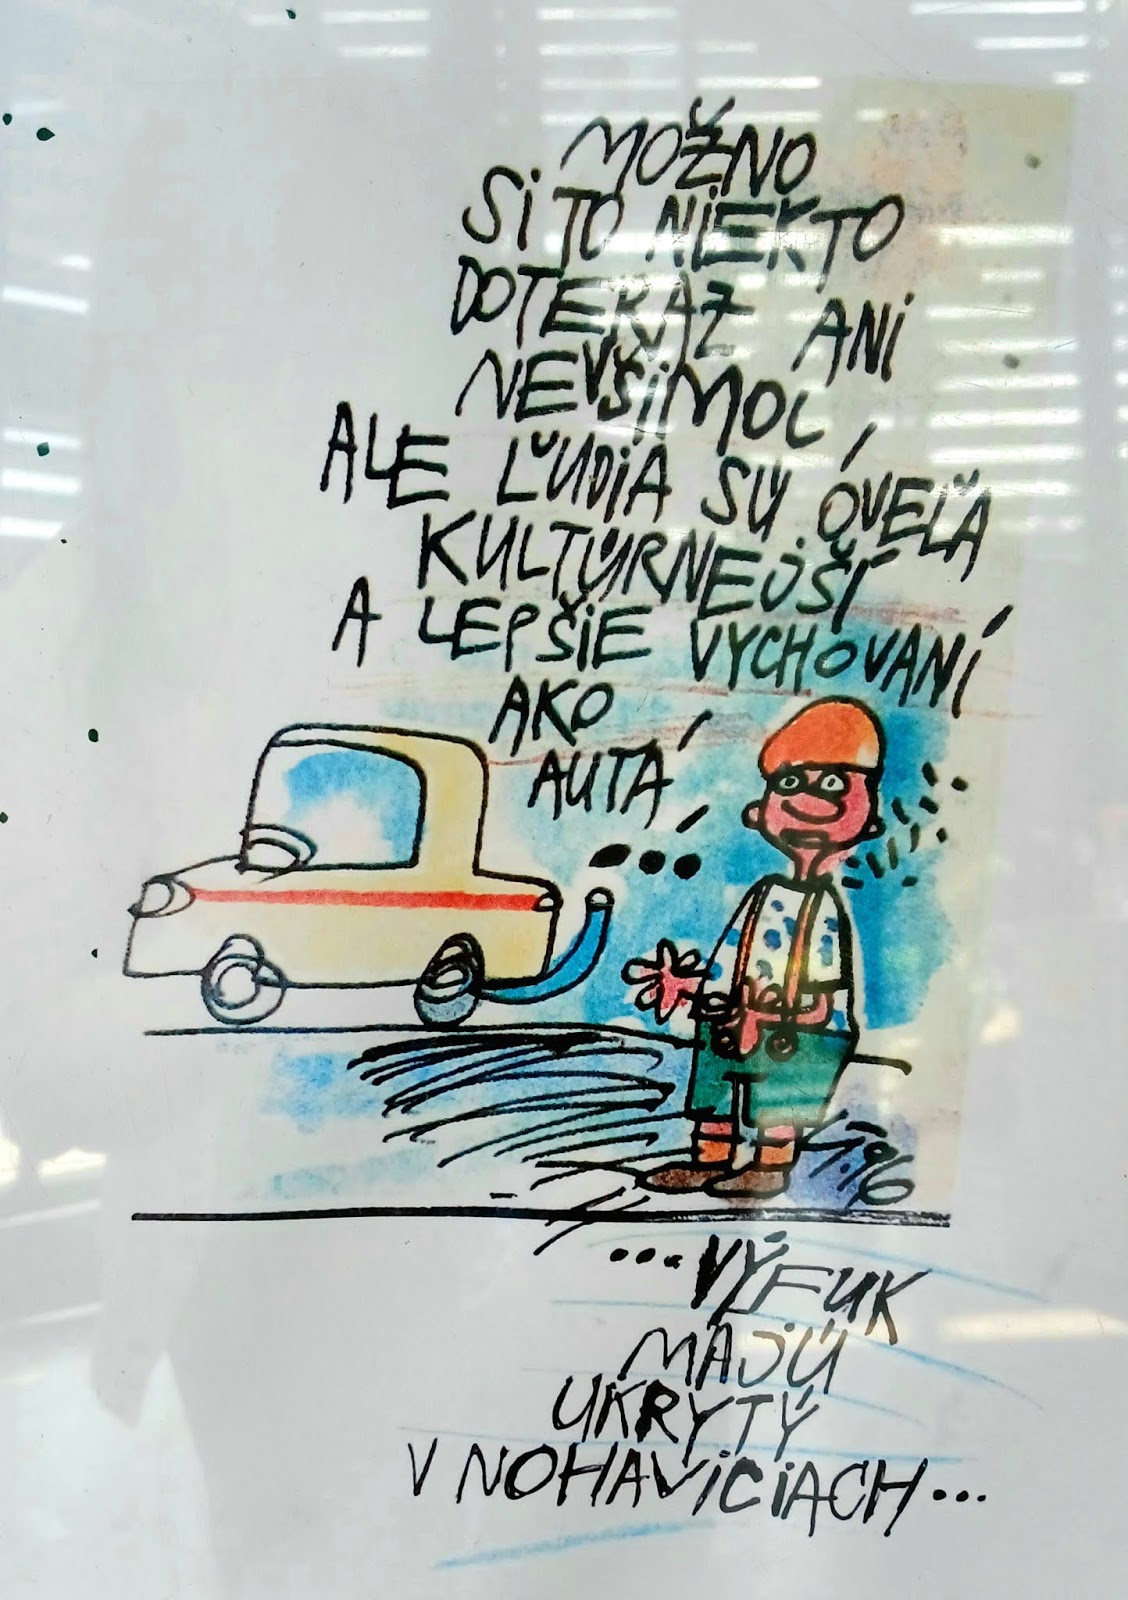 MOŽNO
Si TO NiEKTO
DOTERAZ ANi
NEVŠiMOL,
ALE ĽUDiA SÚ OVEĽA
KULTÚRNEJŠÍ
A LEPŠiE VYCHOVANÍ
AKO
AUTÁ,
...
...VÝFUK
MAJÚ
UKRYTÝ
V NOHAViCiACH...